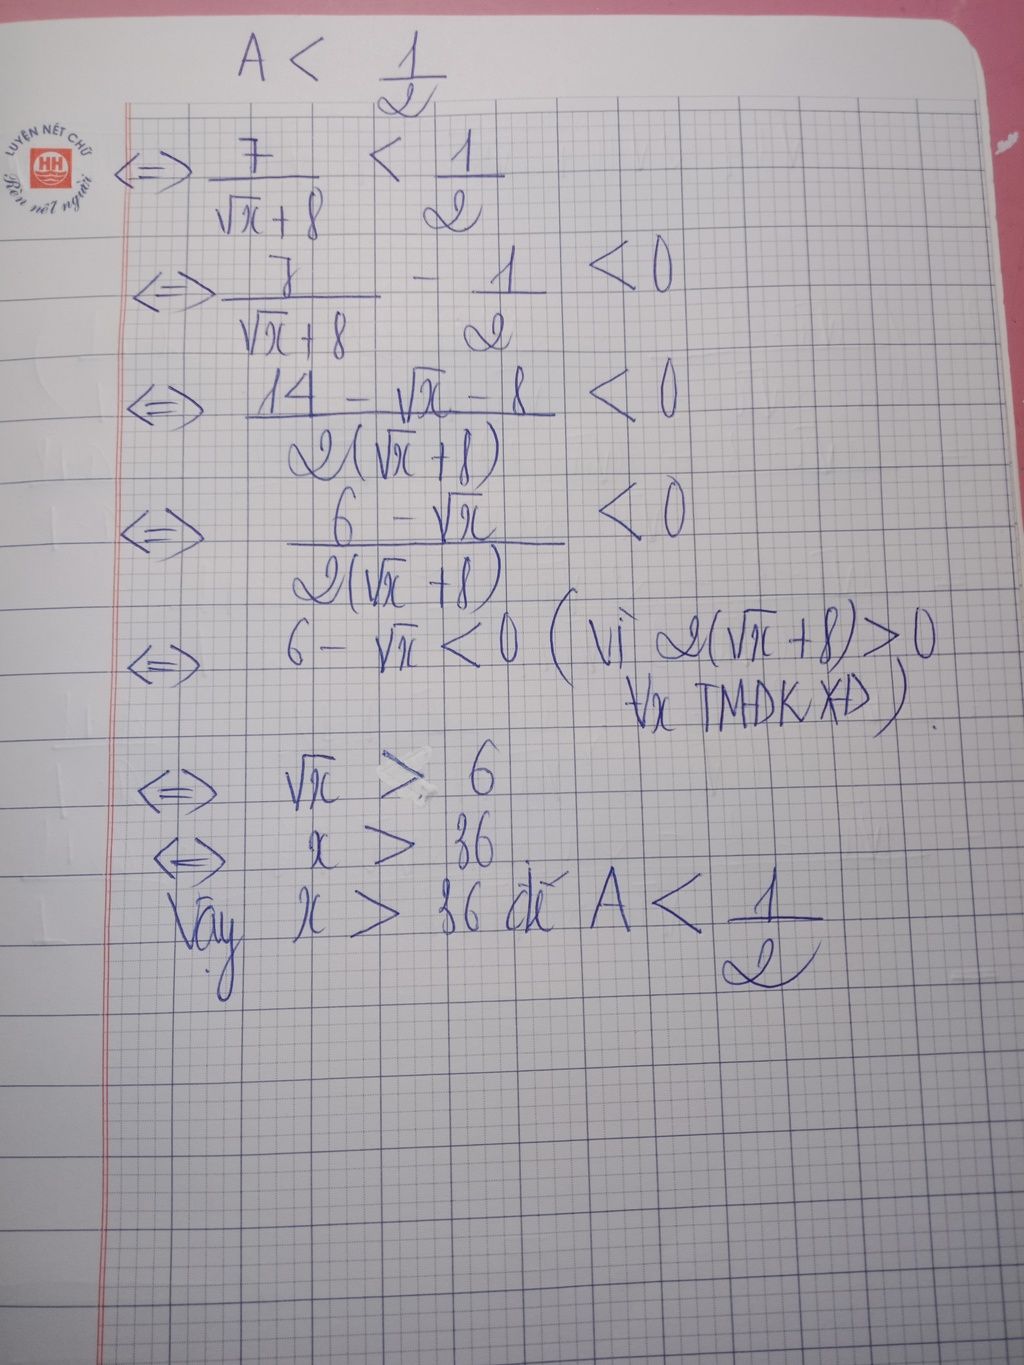 A < 1/2
LUYỆN NÉT CHỮ
HH
Rèn nết người
<=> 7/(√x + 8) < 1/2
<=> 7/(√x + 8) - 1/2 < 0
<=> (14 - √x - 8)/(2(√x + 8)) < 0
<=> (6 - √x)/(2(√x + 8)) < 0
<=> 6 - √x < 0 ( Vì 2(√x + 8) > 0
∀x TMĐKXĐ ).
<=> √x > 6
<=> x > 36
Vậy x > 36 để A < 1/2